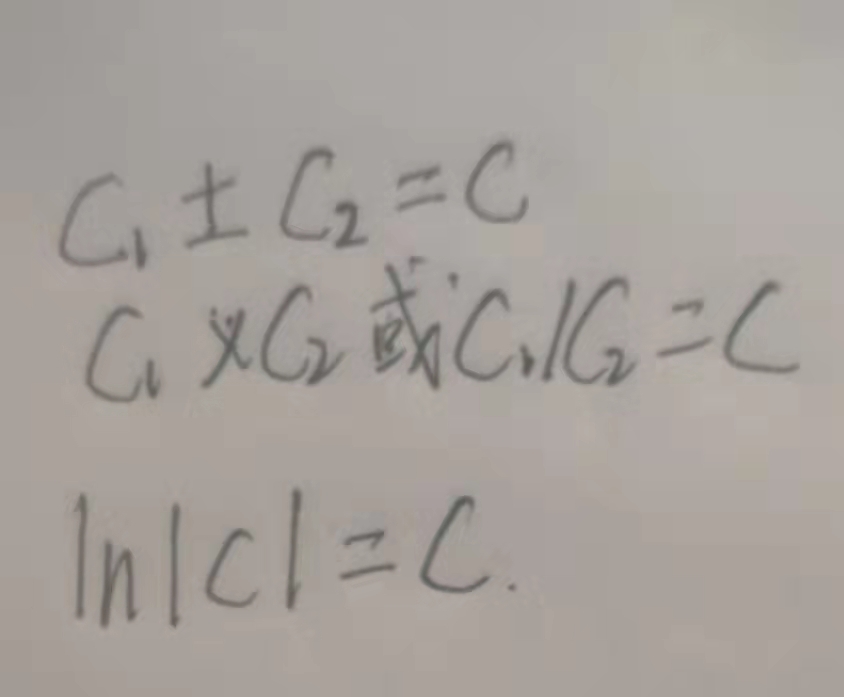 C₁ ± C₂ = C
C₁ × C₂ 或 C₁/C₂ = C
ln|C| = C.